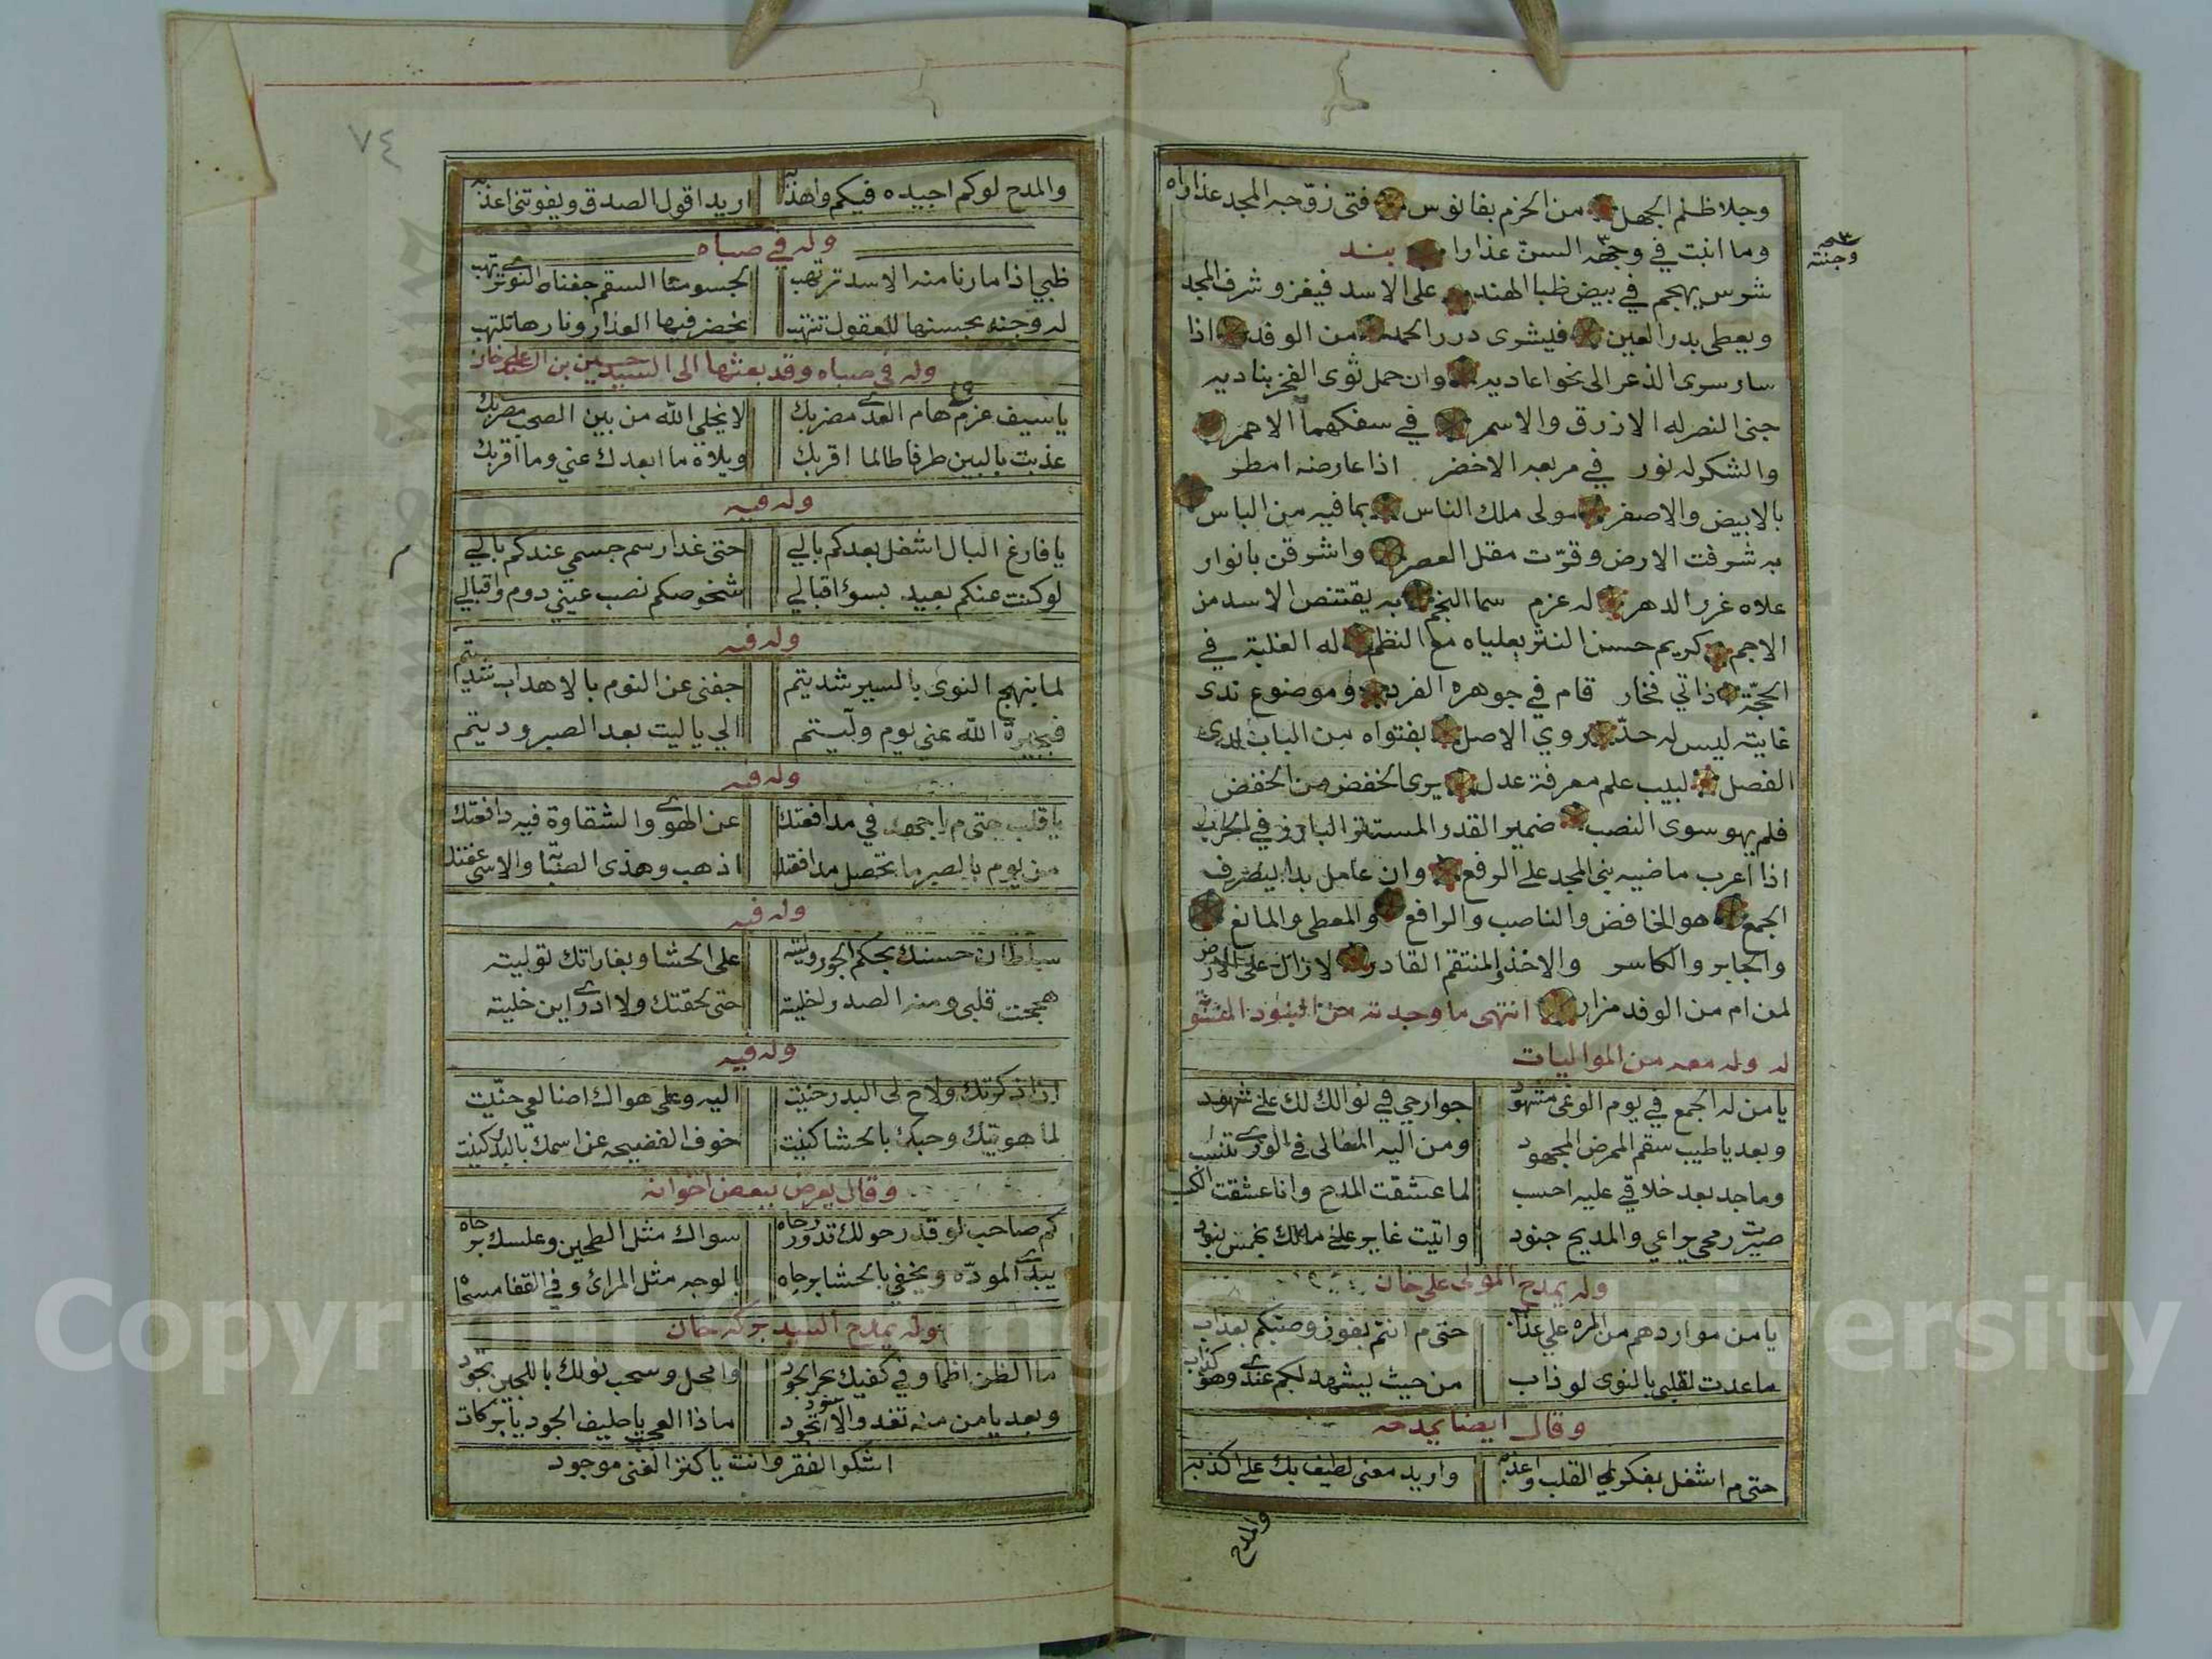 وجلا ظلم الجهل من الحزم بفانوس فتى زوّجه المجد عذاراه
وما انبت في وجهه السنّ عذارا بند
وجنته
شوس يهجم في بيض ظبا الهند على الاسد فيغزو شرف المجد
ويعطي بدر العين فيشرى درر الحمد من الوفد اذا
سار سرى الذعر الى نحو اعاديه وان حمل ثوى الفخر بناديه
جنى النصر له الازرق والاسمر في سفكهما الاحمر
والشكر له نور في مربعه الاخضر اذا عارضه امطر
بالابيض والاصفر مولى ملك الناس بما فيه من الباس
به شرفت الارض وقرّت مقل العصر واشرقن بانوار
علاه غرر الدهر له عزم سما النجم به يقتنص الاسد من
الاجم كريم حسن النثر بعلياه مع النظم له الغلبة في
الحجّة ذاتي فخار قام في جوهره الفرد وموضوع ندى
غايته ليس له حدّ روي الاصل بفتواه من الباب لدى
الفصل لبيب علم معرفة عدل يرى الخفض من الخفض
فلم يهو سوى النصب ضمير القدر المستتر البارز في الحرب
اذا اعرب ماضيه بنى المجد على الرفع وان عامل بدا ليصرف
الجمع هو الخافض والناصب والرافع والمعطي والمانع
والجابر والكاسر والاخذ المنتقم القادر لا زال على الارض
لمن ام من الوفد مزار انتهى ما وجدته من البنود
له وله معه من المواليات
يا من له الجمع في يوم الوغى مشهود جوارحي في نوالك لك علي شهود
وبعد يا طيب سقم الممرض المجهود ومن اليه المعالي في الورى تنسب
وماجد بعد خلاقي عليه احسب لما عشقت المدح وانا عشقت الكسب
صيرت رمحي يراعي والمديح جنود واتيت غاير على مالك بخمس بنود
وله يمدح المولى علي خان
يا من مواردهم من المره علي عذاب حتى م انتم بفوز وصبكم بعذاب
ما عدت لقلبي بالنوى لو ذاب من حيث يشهد لكم عندي وهو كذاب
وقال ايضا يمدحه
حتى م اشغل بفكري القلب واعذبه واريد معنى لطيف بك علي اكذبه
والمدح
٧٤
والمدح لوكم اجيده فيكم واهذبه اريد اقول الصدق ويفوتني اعذبه
وله في صباه
ظبي اذا ما رنا منه الاسد ترتهب لجسومنا السقم جفناه
له وجنه بحسنها للعقول تنتهب نخضر فيها العذار ونارها تلتهب
وله في صباه وقد بعثها الى السيد حسين بن السيد علي خان
يا سيف عزم هام العدى مضربك لا يخلي الله من بين الصحب مضربك
عذبت بالبين طرفا طالما اقربك ويلاه ما ابعدك عني وما اقربك
وله فيه
يا فارغ البال اشغل بعدكم بالي حتى غدا رسم جسمي عندكم بالي
لو كنت عنكم بعيد بسوء اقبالي شخوصكم نصب عيني دوم واقبالي
وله فيه
لما بنهج النوى بالسير شديتم جفني عن النوم بالاهداب شديتم
فبجيرة الله عني يوم وليتم الي يا ليت بعد الصبر وديتم
وله فيه
يا قلب حتى م اجهد في مدافعتك عن الهوى والشقاوة فيه دافعتك
من يوم بالصبر ما تحصل مدافعتك اذهب وهذى الصبّا والاسى عفتك
وله فيه
سلطان حسنك بحكم الجور وليته على الحشا وبغاراتك توليته
هججت قلبي ومنه الصدر اخليته حتى لحقتك ولا ادري اين خليته
وله فيه
اذا ذكرتك ولاح لي البدر حنيت اليه وعلى هواك اضالعي حنّيت
لما هويتك وحبك بالحشا كنيت خوف الفضيحه عن اسمك بالبدر كنيت
وقال يعرض ببعض اخوانه
كم صاحب لو قدر حولك تدور رحاه سواك مثل الطحين وعلسك برحاه
يبدي المودّه ويخفي بالحشا برحاه بالوجه مثل المرائ وفي القفا مسحاه
وله يمدح السيد بركه خان
ما الظن اظما وفي كفيك بحر الجود وامحل وسحب نولك باللجين تجود
وبعد يا من منه تغدو الاسود ماذا العجب يا حليف الجود يا بركات
اشكو الفقر وانت يا كنز الغنى موجود
Copyright © King Saud University